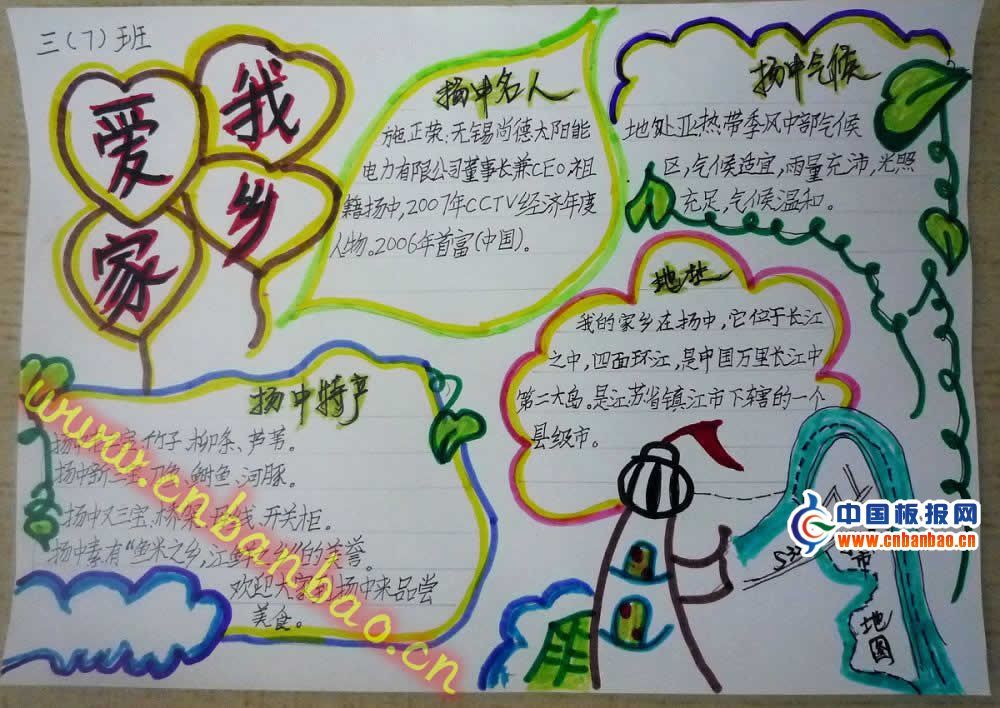 三(7)班
我爱家乡
扬中名人
施正荣、无锡尚德太阳能
电力有限公司董事长兼CEO。祖
籍扬中，2007年CCTV经济年度
人物。2006年首富(中国)。
扬中气候
地处亚热带季风中部气候
区，气候适宜，雨量充沛，光照
充足，气候温和。
地址
我的家乡在扬中，它位于长江
之中，四面环江，是中国万里长江中
第二大岛。是江苏省镇江市下辖的一个
县级市。
扬中特产
扬中 宝、竹子、柳条、芦苇。
扬中新三宝、刀鱼、鲥鱼、河豚。
扬中又三宝、桥架、 线、开关柜。
扬中素有“鱼米之乡，江鲜之乡”的美誉。
欢迎大家到扬中来品尝
美食。
S33
市
地图
中国板报网
www.cnbanbao.cn
www.cnbanbao.cn